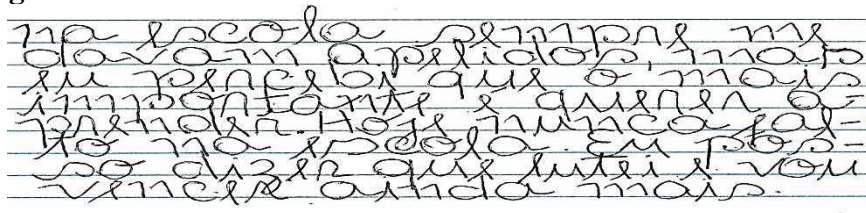 na escola sempre me
davam apelidos, mas
eu percebi que o mais
importante é querer a-
prender. Hoje nunca fal-
to na escola. Eu pos-
so dizer que lutei e vou
vencer ainda mais.